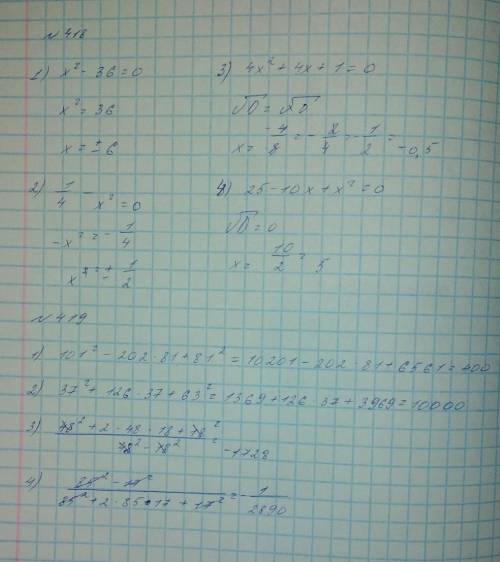 №418
1) x² - 36 = 0
x² = 36
x = ±6
2) 1/4 - x² = 0
-x² = -1/4
x = ± 1/2
3) 4x² + 4x + 1 = 0
√D = √0
x = -4/8 = -2/4 = -1/2 = -0,5
4) 25 - 10x + x² = 0
√D = 0
x = 10/2 = 5
№419
1) 101² - 202 · 81 + 81² = 10201 - 202 · 81 + 6561 = 400
2) 37² + 126 · 37 + 63² = 1369 + 126 · 37 + 3969 = 10000
3) 78² + 2 · 48 · 18 + 78² / 78² - 78² = -1728
4) 85² - 17² / 85² + 2 · 85 · 17 + 17² = -1/2890